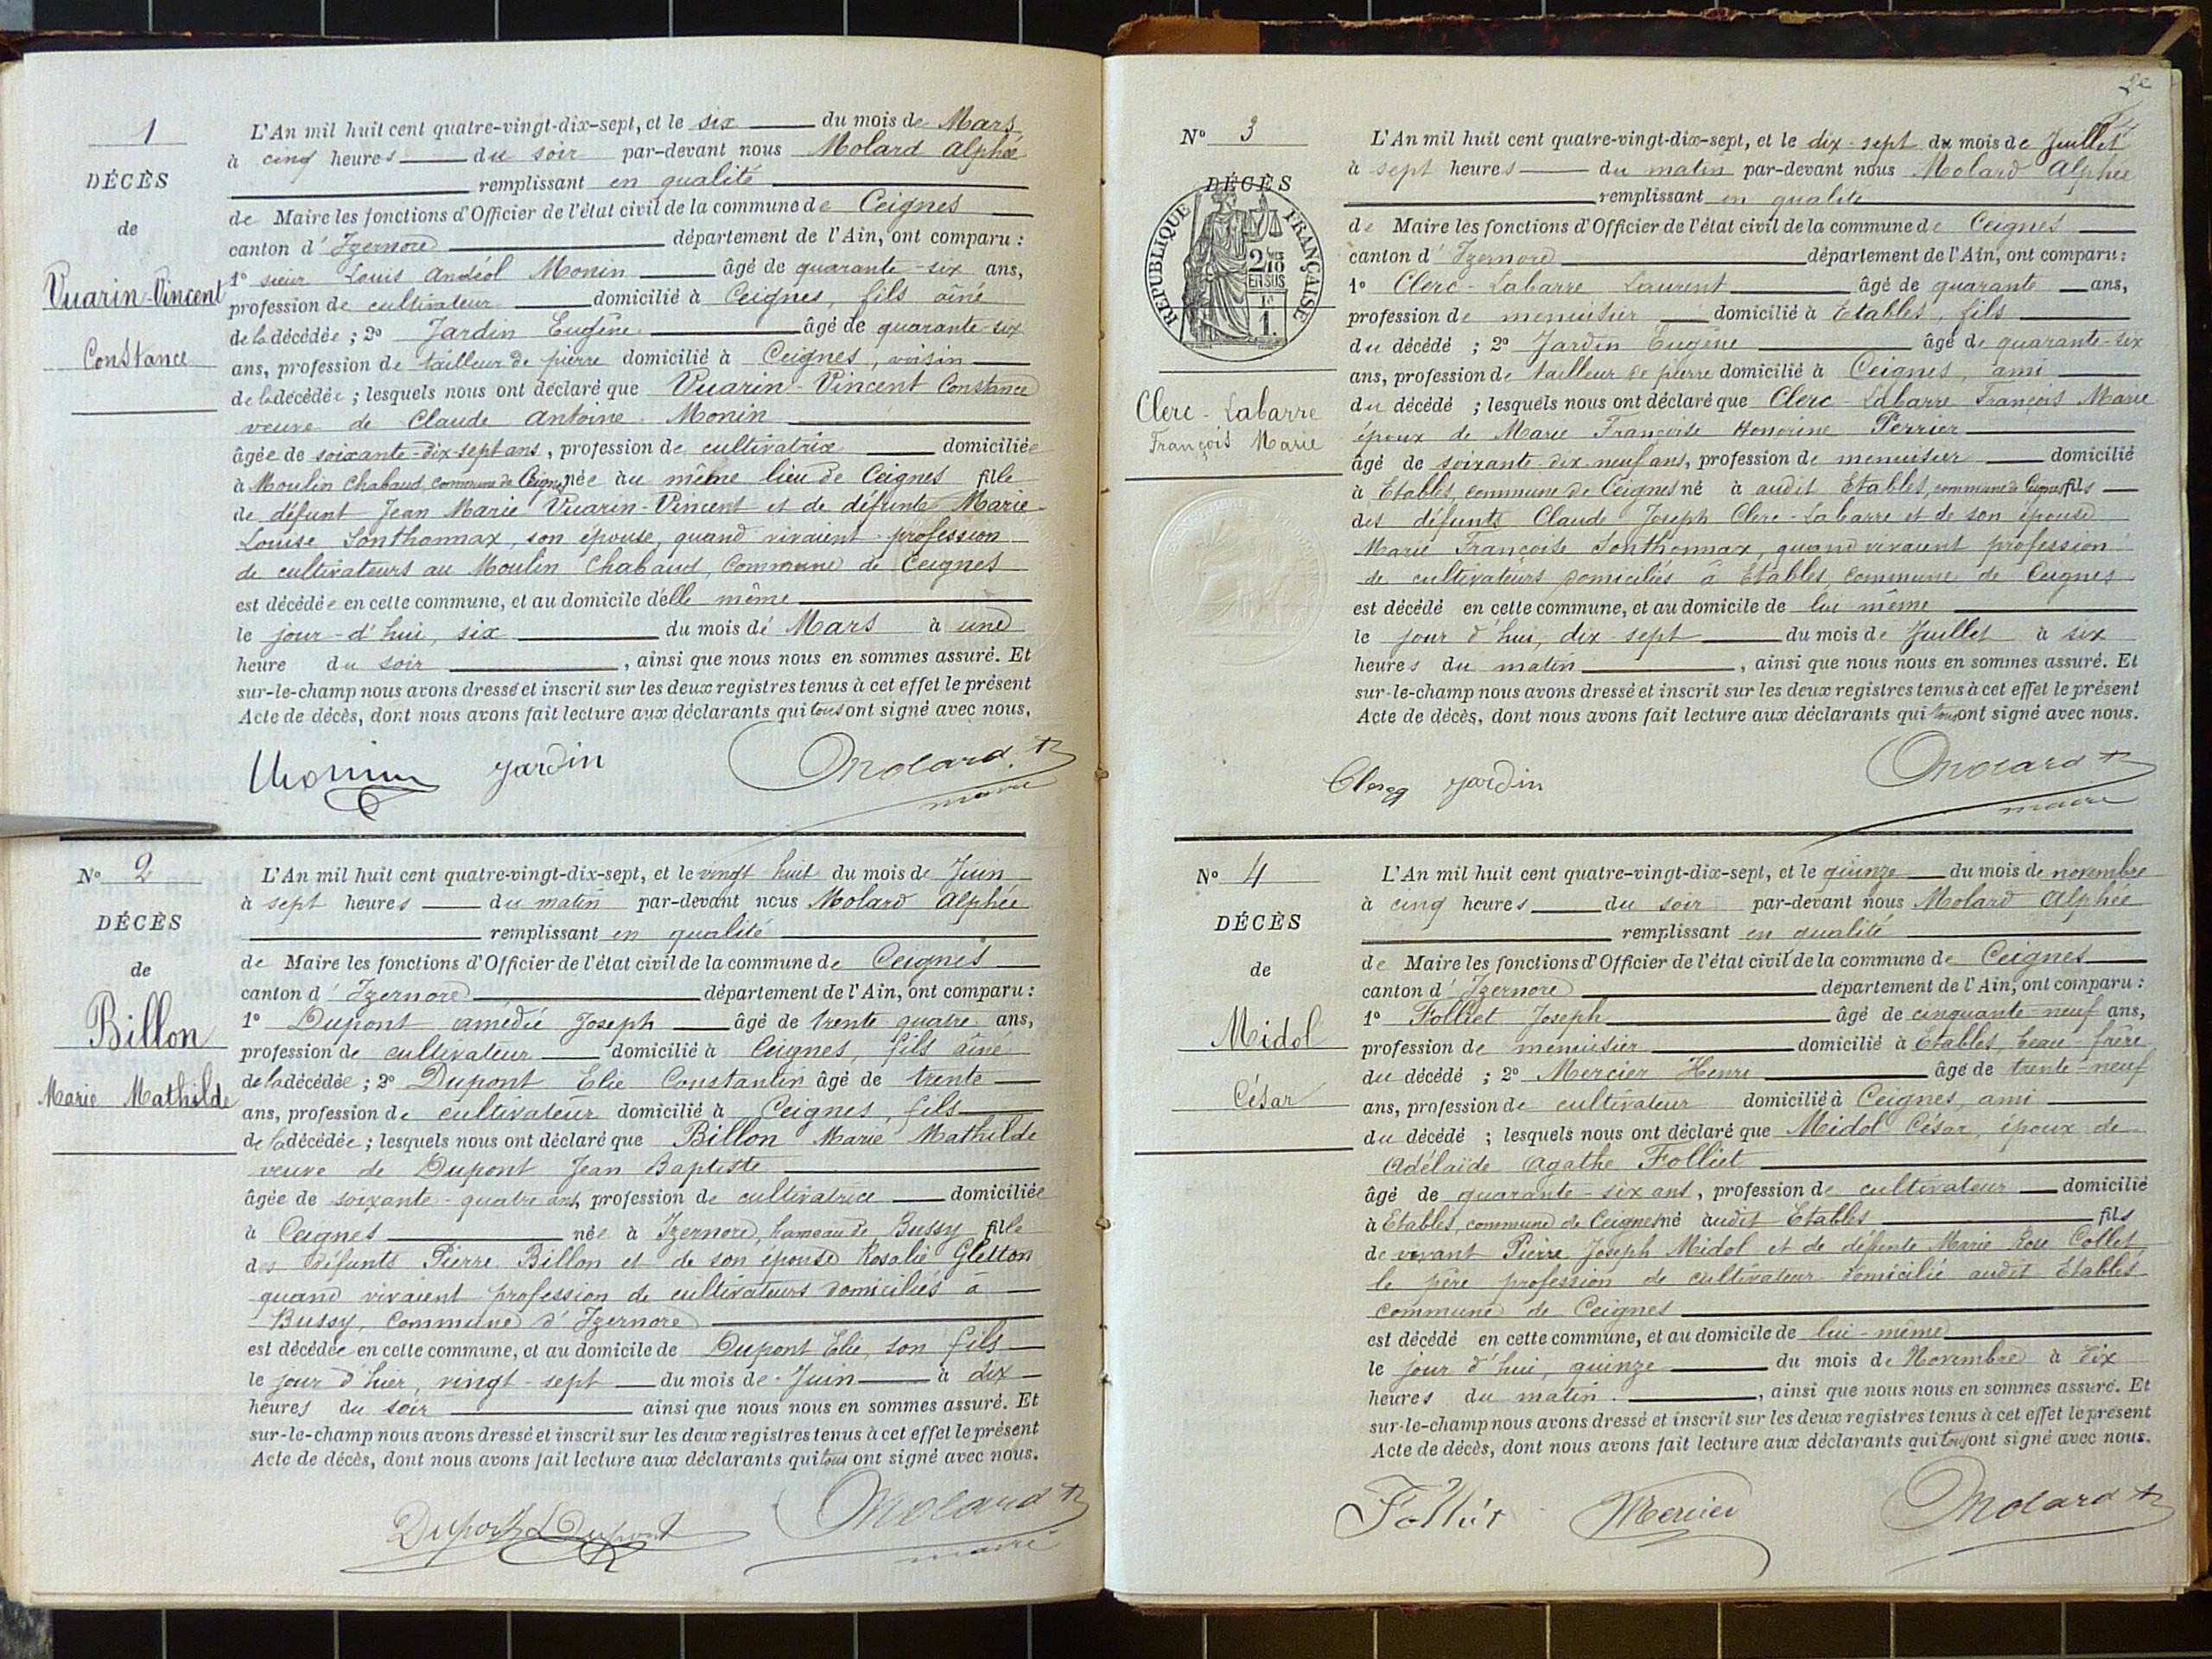 1
DÉCÈS
de
Vuarin-Vincent
Constance
L'An mil huit cent quatre-vingt-dix-sept, et le six du mois de Mars
à cinq heures du soir par-devant nous Molard Alphée
remplissant en qualité
de Maire les fonctions d'Officier de l'état civil de la commune de Ceignes
canton d'Izernore département de l'Ain, ont comparu :
1° sieur Louis Andéol Monin âgé de quarante-six ans,
profession de cultivateur domicilié à Ceignes, fils aîné
de la décédée ; 2° Jardin Eugène âgé de quarante-six
ans, profession de tailleur de pierre domicilié à Ceignes, voisin
de la décédée ; lesquels nous ont déclaré que Vuarin-Vincent Constance
veuve de Claude Antoine Monin
âgée de soixante-dix-sept ans, profession de cultivatrice domiciliée
à Moulin Chabaud, commune de Ceignes, née au même lieu de Ceignes fille
de défunt Jean Marie Vuarin-Vincent et de défunte Marie
Louise Sonthonnax, son épouse, quand vivaient profession
de cultivateurs au Moulin Chabaud, Commune de Ceignes
est décédée en cette commune, et au domicile d'elle même
le jour-d'hui, six du mois de Mars à une
heure du soir, ainsi que nous nous en sommes assuré. Et
sur-le-champ nous avons dressé et inscrit sur les deux registres tenus à cet effet le présent
Acte de décès, dont nous avons fait lecture aux déclarants qui tous ont signé avec nous.
Monin Jardin Molard A
maire
N° 2
DÉCÈS
de
Billon
Marie Mathilde
L'An mil huit cent quatre-vingt-dix-sept, et le vingt huit du mois de Juin
à sept heures du matin par-devant nous Molard Alphée
remplissant en qualité
de Maire les fonctions d'Officier de l'état civil de la commune de Ceignes
canton d'Izernore département de l'Ain, ont comparu :
1° Dupont amédée Joseph âgé de trente quatre ans,
profession de cultivateur domicilié à Ceignes, fils aîné
de la décédée ; 2° Dupont Elie Constantin âgé de trente
ans, profession de cultivateur domicilié à Ceignes, fils
de la décédée ; lesquels nous ont déclaré que Billon Marie Mathilde
veuve de Dupont Jean Baptiste
âgée de soixante-quatre ans, profession de cultivatrice domiciliée
à Ceignes née à Izernore, hameau de Bussy fille
des défunts Pierre Billon et de son épouse Rosalie Gletton
quand vivaient profession de cultivateurs domiciliés à
Bussy, Commune d'Izernore
est décédée en cette commune, et au domicile de Dupont Elie, son fils
le jour d'hier, vingt-sept du mois de Juin à dix
heures du soir ainsi que nous nous en sommes assuré. Et
sur-le-champ nous avons dressé et inscrit sur les deux registres tenus à cet effet le présent
Acte de décès, dont nous avons fait lecture aux déclarants qui tous ont signé avec nous.
Dupont Dupont Molard A
maire
2e
N° 3
DÉCÈS
RÉPUBLIQUE FRANÇAISE
2/10
EN SUS
1.
Clerc-Labarre
François Marie
L'An mil huit cent quatre-vingt-dix-sept, et le dix-sept du mois de Juillet
à sept heures du matin par-devant nous Molard Alphée
remplissant en qualité
de Maire les fonctions d'Officier de l'état civil de la commune de Ceignes
canton d'Izernore département de l'Ain, ont comparu :
1° Clerc-Labarre Laurent âgé de quarante ans,
profession de menuisier domicilié à Etables, fils
du décédé ; 2° Jardin Eugène âgé de quarante-six
ans, profession de tailleur de pierre domicilié à Ceignes, ami
du décédé ; lesquels nous ont déclaré que Clerc-Labarre François Marie
époux de Marie Françoise Honorine Perrier
âgé de soixante-dix-neuf ans, profession de menuisier domicilié
à Etables, commune de Ceignes né à audit Etables, commune de Ceignes fils
des défunts Claude Joseph Clerc-Labarre et de son épouse
Marie Françoise Sonthonnax, quand vivaient profession
de cultivateurs domiciliés à Etables, commune de Ceignes
est décédé en cette commune, et au domicile de lui même
le jour d'hui, dix-sept du mois de Juillet à six
heures du matin, ainsi que nous nous en sommes assuré. Et
sur-le-champ nous avons dressé et inscrit sur les deux registres tenus à cet effet le présent
Acte de décès, dont nous avons fait lecture aux déclarants qui tous ont signé avec nous.
Clerc Jardin Molard A
maire
N° 4
DÉCÈS
de
Midol
César
L'An mil huit cent quatre-vingt-dix-sept, et le quinze du mois de novembre
à cinq heures du soir par-devant nous Molard Alphée
remplissant en qualité
de Maire les fonctions d'Officier de l'état civil de la commune de Ceignes
canton d'Izernore département de l'Ain, ont comparu :
1° Folliet Joseph âgé de cinquante-neuf ans,
profession de menuisier domicilié à Etables, beau-frère
du décédé ; 2° Mercier Henri âgé de trente-neuf
ans, profession de cultivateur domicilié à Ceignes, ami
du décédé ; lesquels nous ont déclaré que Midol César, époux de
Adélaïde Agathe Folliet
âgé de quarante-six ans, profession de cultivateur domicilié
à Etables, commune de Ceignes né audit Etables fils
de vivant Pierre Joseph Midol et de défunte Marie Rose Collet,
le père profession de cultivateur domicilié audit Etables
commune de Ceignes
est décédé en cette commune, et au domicile de lui-même
le jour d'hui, quinze du mois de Novembre à dix
heures du matin, ainsi que nous nous en sommes assuré. Et
sur-le-champ nous avons dressé et inscrit sur les deux registres tenus à cet effet le présent
Acte de décès, dont nous avons fait lecture aux déclarants qui tous ont signé avec nous.
Folliet Mercier Molard A